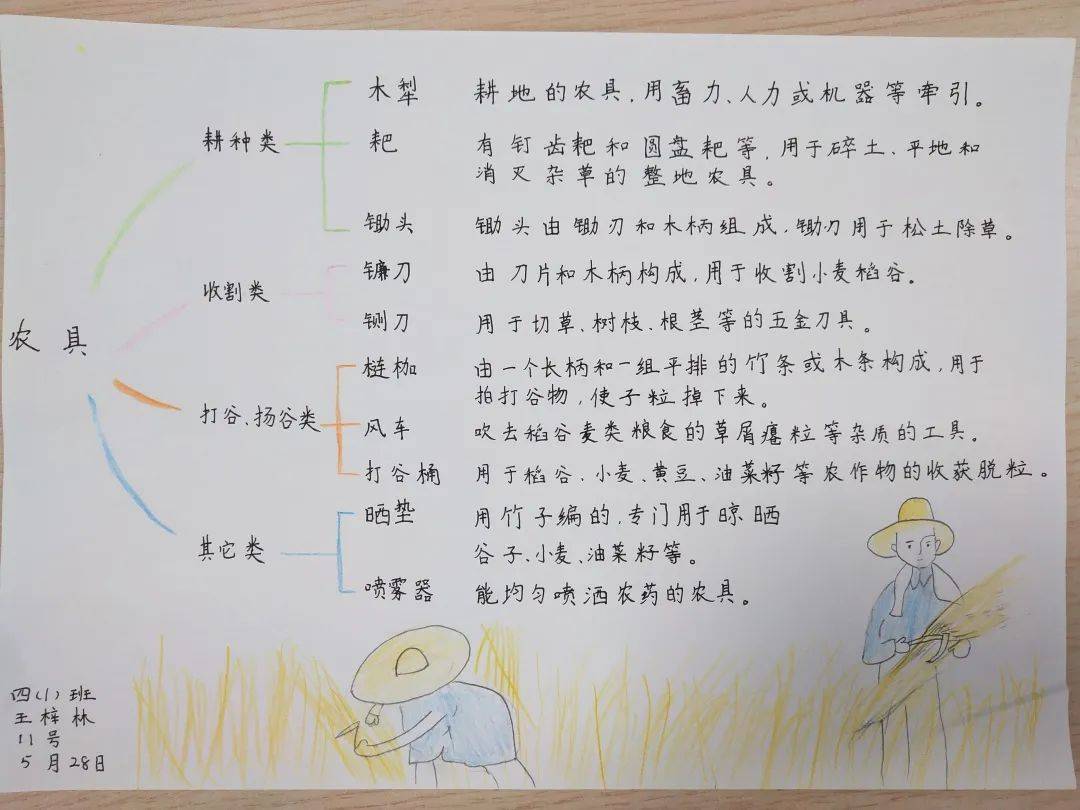 农具
耕种类
木犁 耕地的农具，用畜力、人力或机器等牵引。
耙 有钉齿耙和圆盘耙等，用于碎土、平地和
消灭杂草的整地农具。
锄头 锄头由锄刃和木柄组成，锄刃用于松土除草。
收割类
镰刀 由刀片和木柄构成，用于收割小麦稻谷。
铡刀 用于切草、树枝、根茎等的五金刀具。
打谷、扬谷类
梿枷 由一个长柄和一组平排的竹条或木条构成，用于
拍打谷物，使子粒掉下来。
风车 吹去稻谷麦类粮食的草屑瘪粒等杂质的工具。
打谷桶 用于稻谷、小麦、黄豆、油菜籽等农作物的收获脱粒。
其它类
晒垫 用竹子编的，专门用于晾晒
谷子、小麦、油菜籽等。
喷雾器 能均匀喷洒农药的农具。
四（1）班
王梓林
11号
5月28日